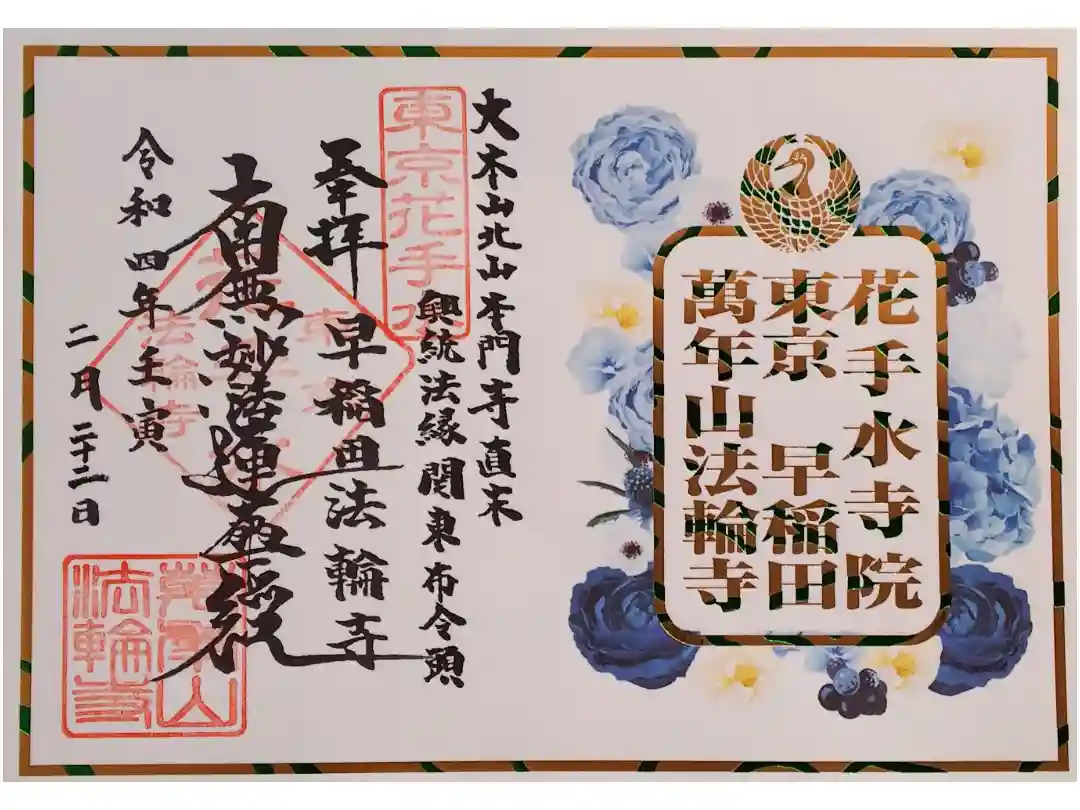 花手水寺院
東京 早稲田
萬年山法輪寺
大本山北山本門寺直末
興統法縁関東布令頭
東京花手水
奉拝 早稲田法輪寺
南無妙法蓮華経
令和四年壬寅
二月二十二日
法輪寺
萬年山
法輪寺